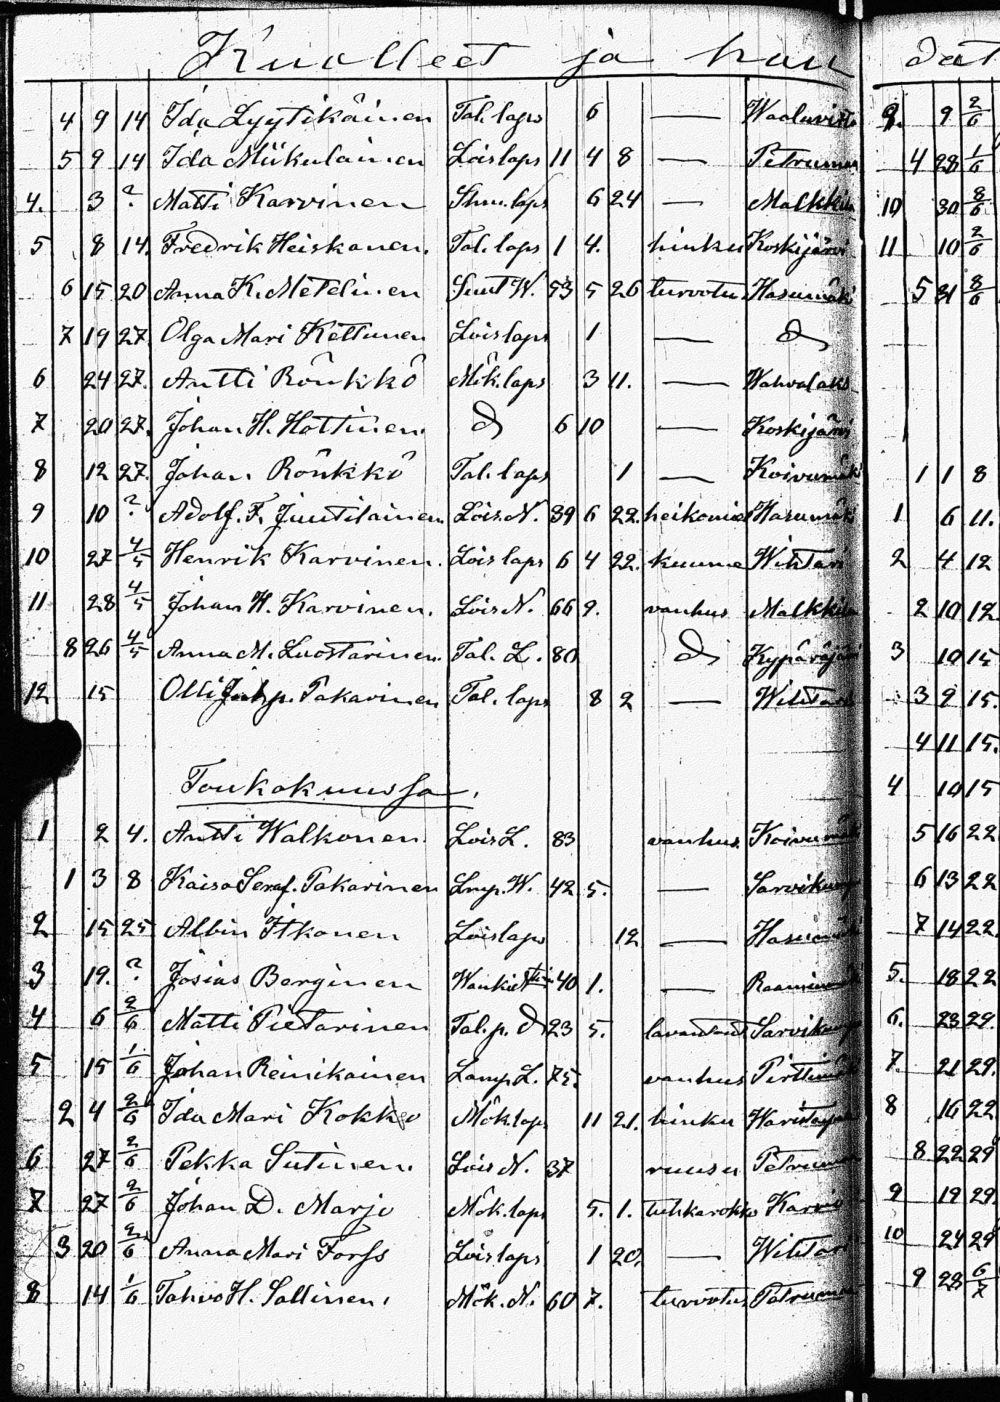 Kuolleet ja hau dat
4 9 14 Ida Lyytikäinen Tal. laps 6 — Waaluvirta
5 9 14 Ida Miikulainen Lois laps 11 4 8 — Petrumaa
4. 3 ? Matti Karvinen laps 6 24 — Malkkila
5 8 14. Fredrik Heiskanen. Tal. laps 1 4. hinku Koskijärvi
6 15 20 Anna K. Metelinen Suut W. 53 5 26 turvotu. Hasumäki
7 19 27. Olga Mari Kettunen Lois laps 1 — d
6 24 27. Antti Rönkkö Mök. laps 3 11. —
7 20 27. Johan H. Hottinen. d 6 10 — Koskijärvi
8 12 27. Johan Rönkkö Tal. laps 1 — Koivumäki
9 10 ? Adolf. F. Juutilainen. Lois. N. 39 6 22. Hasumäki
10 27 4/5 Henrik Karvinen. Lois laps 6 4 22. kuume Wihtari
11 28 4/5 Johan H. Karvinen. Lois N. 66 2. vanhus Malkkila
8 26 4/5 Anna M. Luostarinen. Tal. L. 80 d Kypäräjärvi
12 15 Olli Takarinen Tal. laps 8 2 — Wihtari
Toukokuussa.
1 2 4. Antti Walkonen Lois L. 83 vanhus. Koivumäki
1 3 8 Kaisa Seraf. Takarinen Lmp. W. 42 5. — Sarvikumpu
2 15 25 Albin Itkonen Lois laps 12 — Hasumäki
3 19. ? Josias Berginen 40 1. —
4 6 2/6 Matti Pietarinen Tal. p. d 23 5. Sarvikumpu
5 15 1/6 Johan Reinikainen Lamp. L. 75. vanhus Pirttimäki
2 4 2/6 Ida Mari Kokko Mök laps 11 21. hinku
6 27 2/6 Pekka Sutinen. Lois N. 37 ruusu Petrumaa
7 27 2/6 Johan D. Marjo Mök. laps 5. 1. tuhkarokko Karvio
3 20 2/6 Anna Mari Forss Lois laps 1 20 — Wihtari
8 14 1/6 Tahvo H. Sallinen. Mök. N. 60 7. turvotus Petrumaa
9 2/6
4 28 1/6
10 30 8/6
11 10 2/6
5 31 8/6
1 1 8
1 6 11.
2 4 12
2 10 12.
3 10 15
3 9 15.
4 11 15.
4 10 15
5 16 22
6 13 22
7 14 22.
5. 18 22
6. 23 29.
7. 21 29.
8 16 22
8 22 29
9 19 29.
10 24 29
9 28 6/7